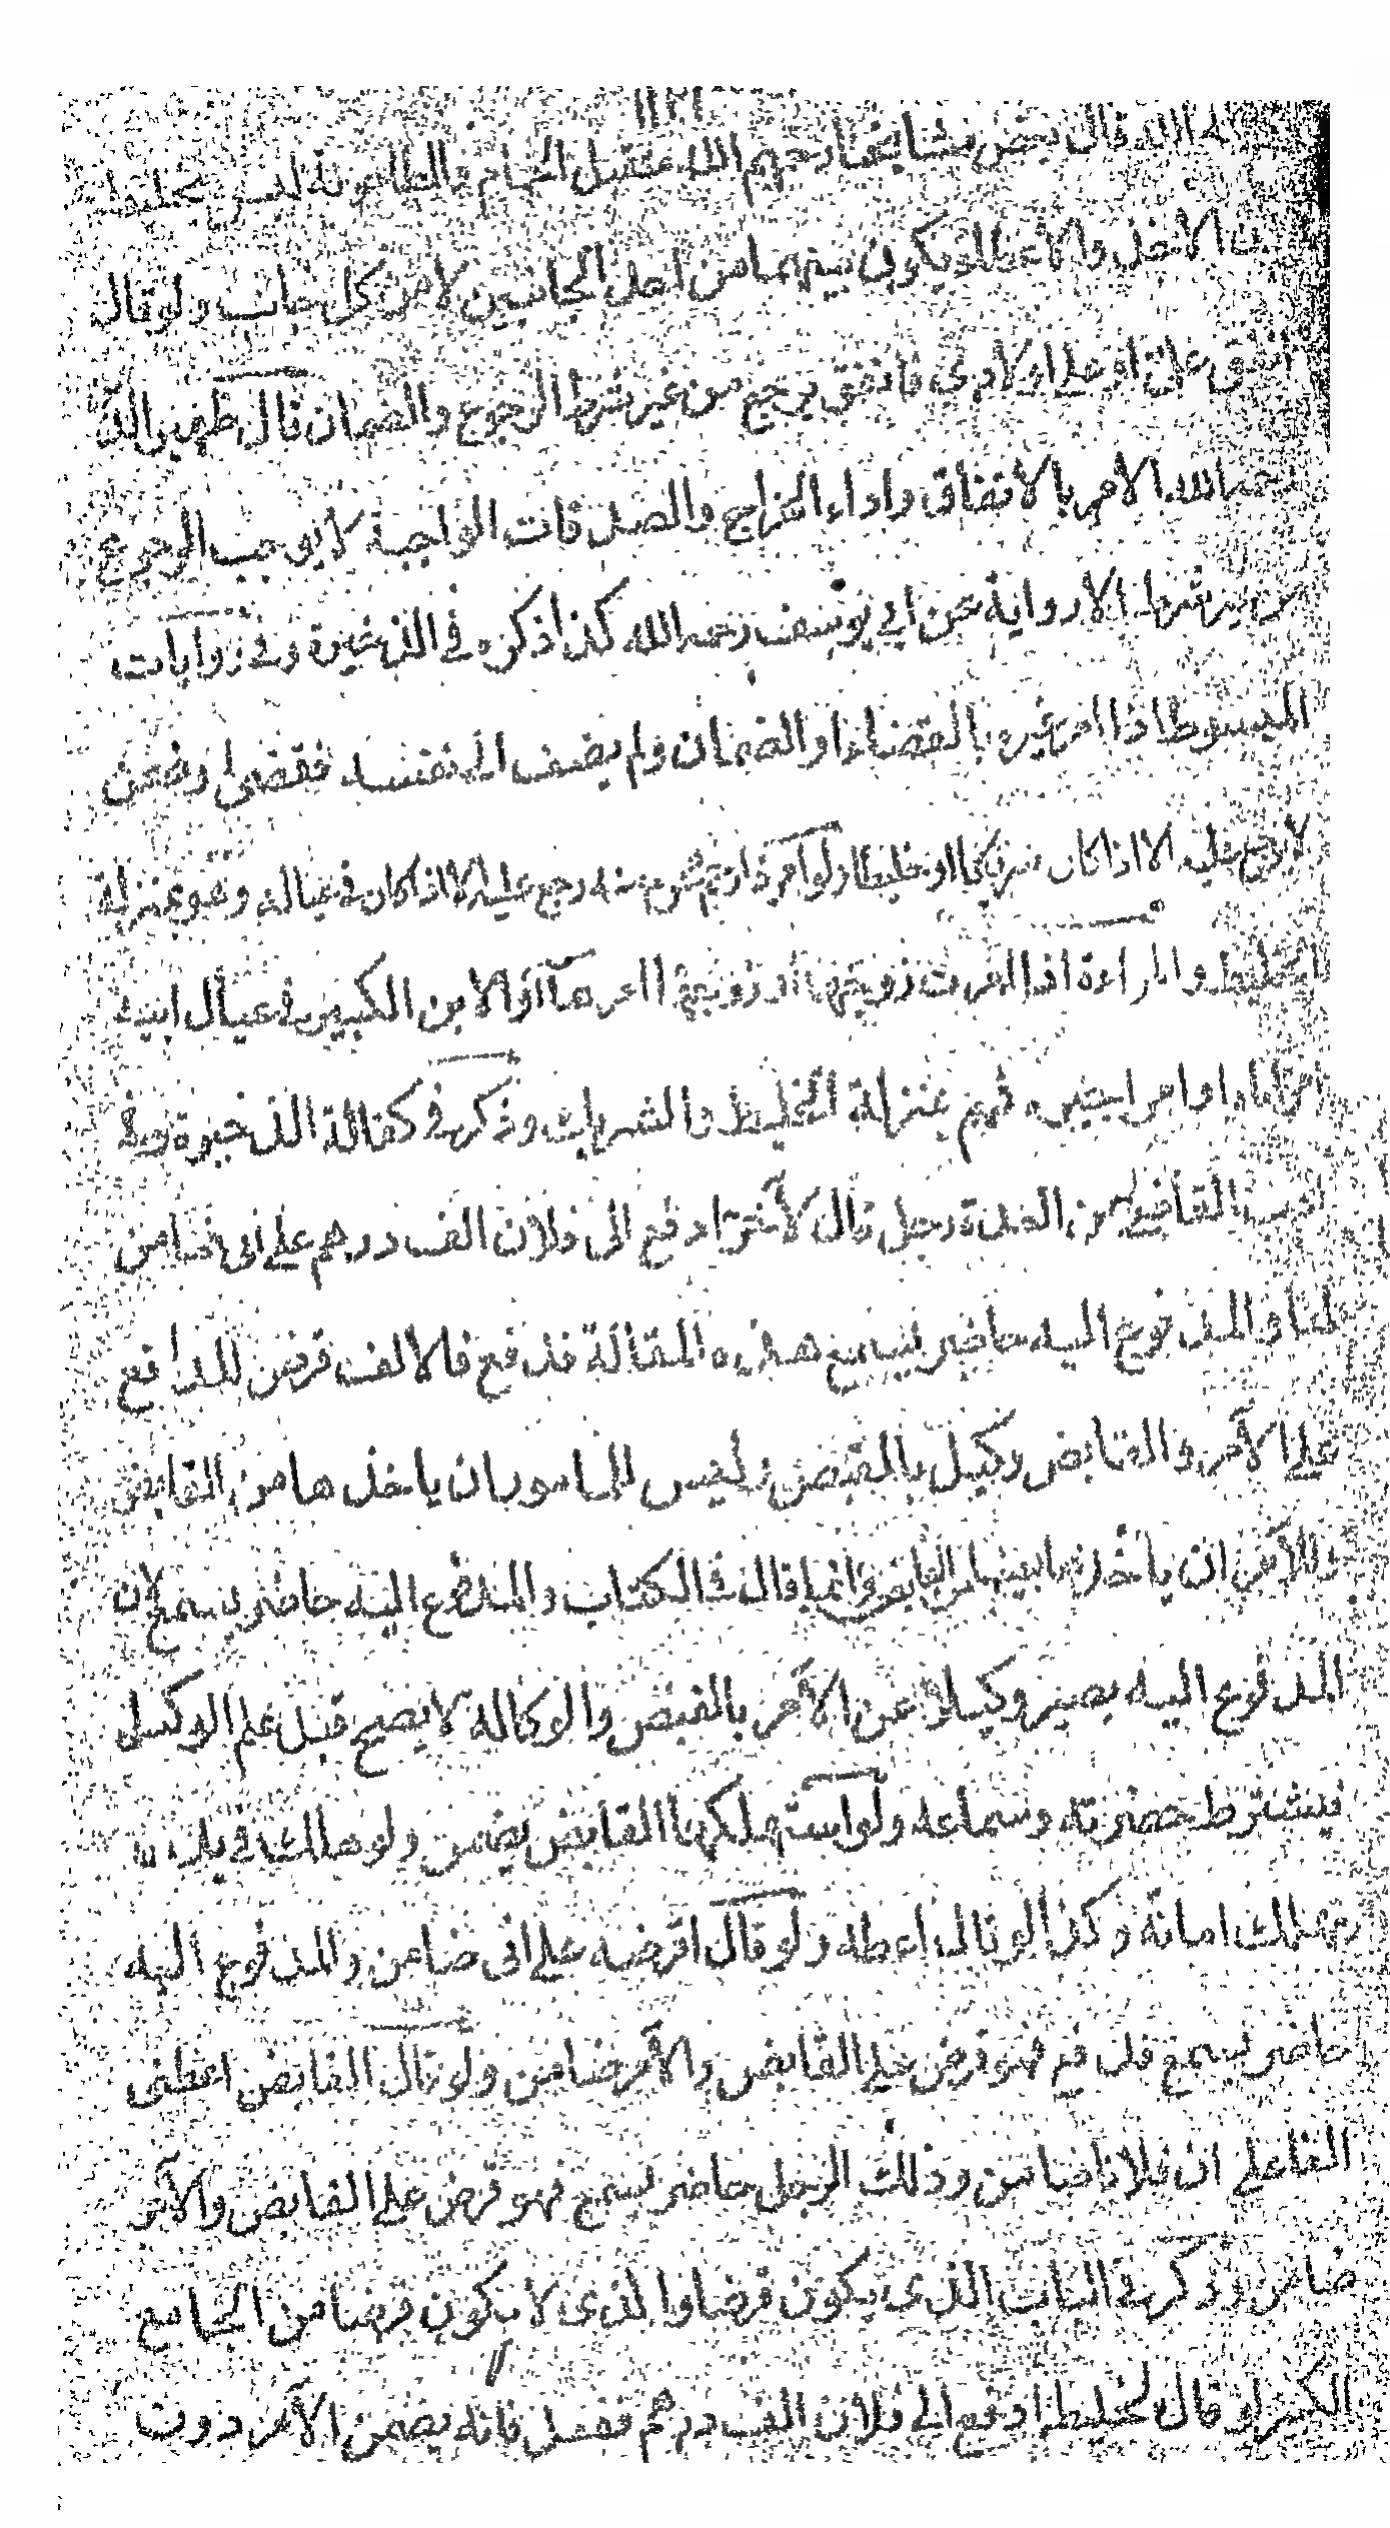 الله قال بعض مشايخنا رحمهم الله متقبل الحمام والطاحونة لغير بمخليط
الاخذ والاعطاء ويكون بينهما من اهل الجانبين لا من كل جانب ولو قال
انفق على او على اولادي فانفق يرجع من غير شرط الرجوع والضمان قال ظهير الدين
رحمه الله الامر بالانفاق واداء الخراج والصدقات الواجبة لا يوجب الرجوع
من غير شرط الا رواية عن ابي يوسف رحمه الله كذا ذكره في الذخيرة وفي روايات
المبسوط اذا امر غيره بالقضاء او الضمان ولم يضف الى نفسه فقضى او ضمن
لا يرجع عليه الا اذا كان شريكا او خليطا ولو امره رجع عليه الا اذا كان في عياله وهو بمنزلة
الخليط والمراءة اذا امرت زوجها او زوجها امرها او الابن الكبير في عيال ابيه
امر اباه او امر اجيره فهم بمنزلة الخليط والشريك وذكر في كفالة الذخيرة وفي
ادب القاضي من العدة رجل قال لآخر ادفع الى فلان الف درهم على اني ضامن
لها والمدفوع اليه حاضر يسمع هذه المقالة فدفع فالالف قرض للدافع
على الآمر والقابض وكيل بالقبض وليس للمامور ان ياخذها من القابض
وللآمر ان ياخذها بينهما من القابض وانما قال في الكتاب والمدفوع اليه حاضر يسمع لان
المدفوع اليه يصير وكيلا عن الآمر بالقبض والوكالة لا يصح قبل علم الوكيل
فيشترط حضرته وسماعه ولو استهلكها القابض يضمن ولو هلك في يده
يهلك امانة وكذا لو قال اعطه ولو قال اقرضه على اني ضامن والمدفوع اليه
حاضر يسمع فدفع فهو قرض على القابض والآمر ضامن ولو قال القابض اعطني
الفا على ان فلانا ضامن وذلك الرجل حاضر يسمع فهو قرض على القابض والآمر
ضامن وذكر في الباب الذي يكون قرضا والذي لا يكون قرضا من الجامع
الكبير لو قال لخليط ادفع الى فلان الف درهم ففعل فانه يضمن الآمر دون